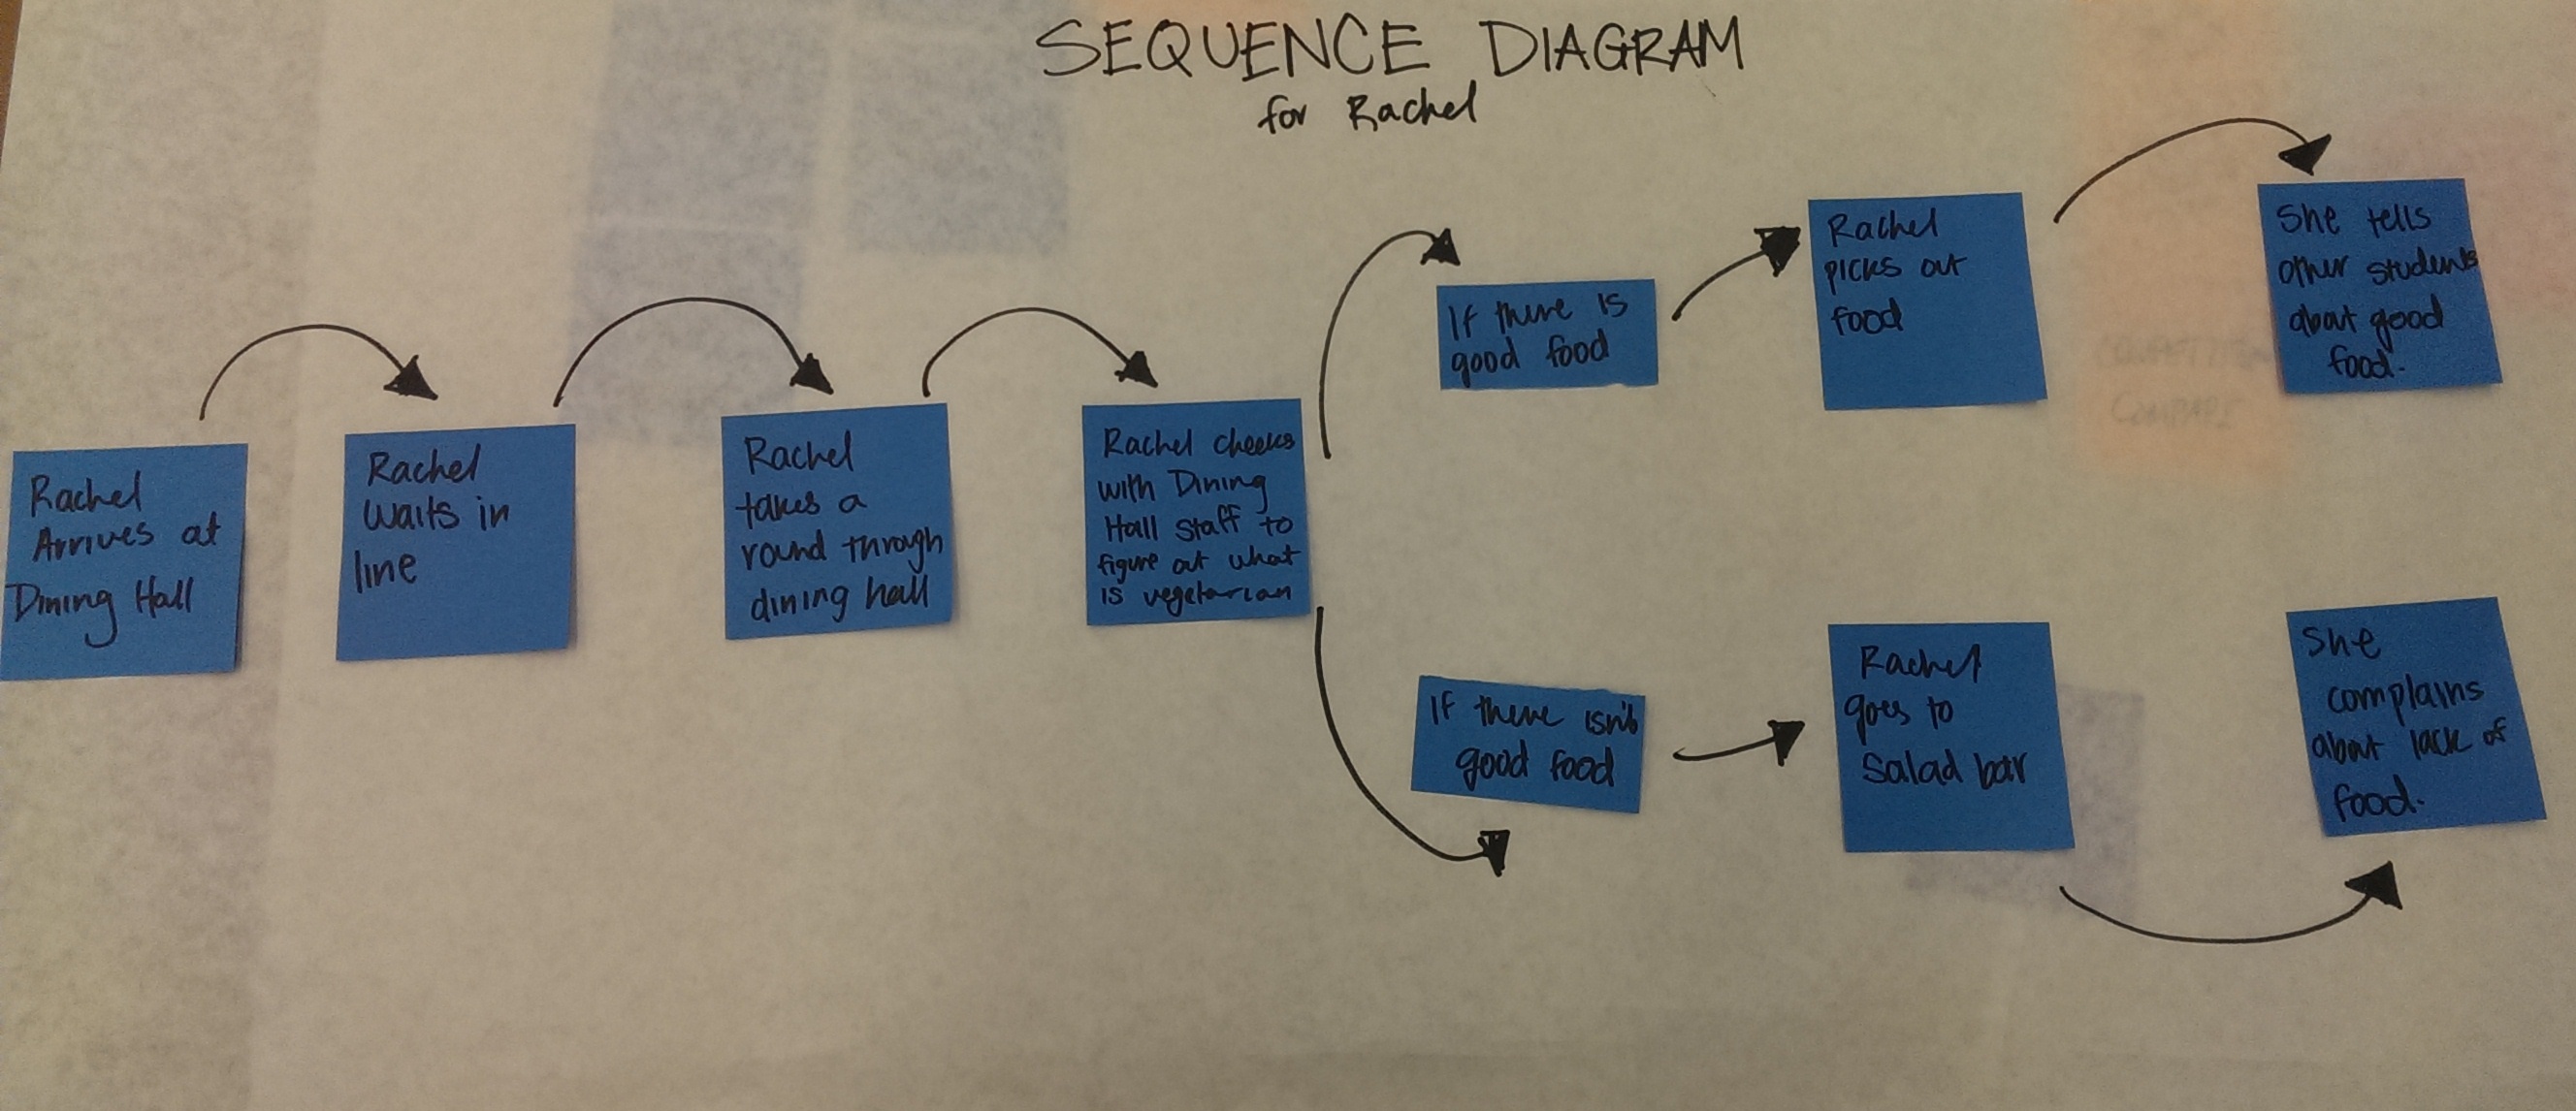 SEQUENCE DIAGRAM
for Rachel
Rachel
Arrives at
Dining Hall
Rachel
waits in
line
Rachel
takes a
round through
dining hall
Rachel checks
with Dining
Hall Staff to
figure out what
is vegetarian
If there is
good food
Rachel
picks out
food
She tells
other students
about good
food.
If there isn't
good food
Rachel
goes to
Salad bar
She
complains
about lack of
food.
COMPARE